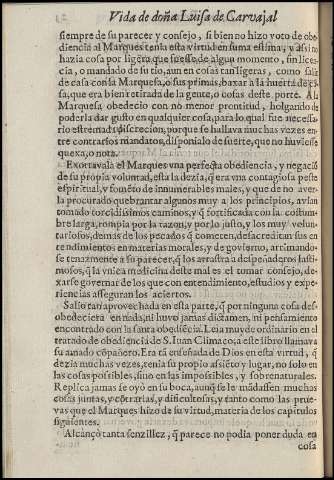 Vida de doña Luisa de Carvajal
siempre de su parecer y consejo, si bien no hizo voto de obe
diencia al Marques tenia esta virtud en suma estima, y assi no
hazia cosa por ligera que fuesse, de algun momento, sin licen
cia, o mandado de su tio, aun en cosas tan ligeras, como salir
de casa con la Marquesa, o sus primas, baxar a la huerta de ca
sa, que era bien retirada de la gente, o cosas deste porte. Al
Marquesa obedecio con no menor prontitud, holgando de
poderla dar gusto en qualquier cosa, para lo qual fue necessa
rio estremada discrecion, porque se hallava muchas vezes en
tre contrarios mandatos, disponialo de suerte, que no huviesse
quexa, o nota.
Exortavala el Marques a una perfecta obediencia, y negació
de su propia voluntad, esta la dezia, q̃ era una contagiosa peste
espiritual, y fomẽto de innumerables males, y que de no aver
la procurado quebrantar algunos muy a los principios, avian
tomado torcidissimos caminos, y q̃ fortificada con la costum
bre larga, rompia por la razon, y por lo justo, y los muy volun
tariosos, demas de los pecados q̃ cometen, desacreditan sus en
tendimientos en materias morales, y de govierno, arrimando
se tenazmente a su parecer, q̃ los arrastra a despeñaderos lasti
mosos, q̃ la unica medicina deste mal es el tomar consejo, de-
xarse governar de los que con entendimiento, estudios y expe
riencias asseguran los aciertos.
Salio tan aprovechada en esta parte, q̃ por ninguna cosa des-
obedeciera en nada, ni huvo jamas dictamen, ni pensamiento
encontrado con la santa obediẽcia. Leia muy de ordinario en el
tratado de obediencia de S. Iuan Climaco, a este libro llamava
su amado cõpañero. Era tã enseñada de Dios en esta virtud, q̃
dezia muchas vezes, tenia su propio assiẽto y lugar, no solo en
las cosas possibles, sino en las impossibles, y sobrenaturales.
Replica jamas se oyò en su boca, aunq̃ se le mãdassen muchas
cosas juntas, y cõtrarias, y dificultosas, y tanto como las prue
vas que el Marques hizo de su virtud, materia de los capitulos
siguientes.
Alcançò tanta senzillez, q̃ parece no podia poner duda en
cosa